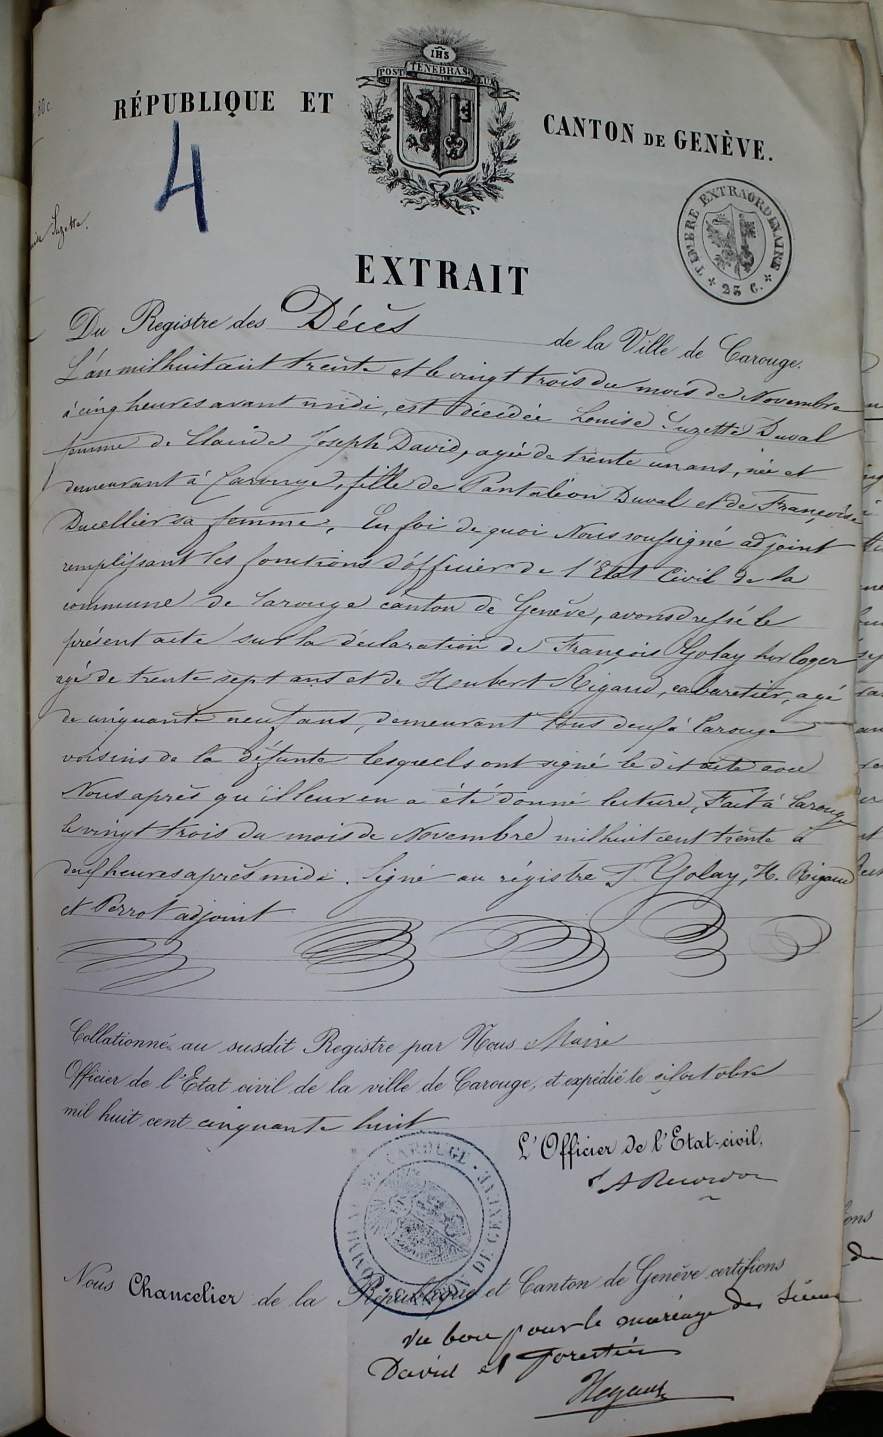 IHS
POST TENEBRAS LUX
RÉPUBLIQUE ET CANTON DE GENÈVE.
80c
4
Suzette.
TIMBRE EXTRAORDINAIRE
25 C.
EXTRAIT
Du Registre des Décès de la Ville de Carouge.
L'an mil huit cent trente et le vingt trois du mois de Novembre
à cinq heures avant midi, est décédée Louise Suzette Duval
femme de Claude Joseph David, agée de trente un ans, née et
demeurant à Carouge, fille de Pantaléon Duval et de Françoise
Ducellier sa femme. En foi de quoi Nous soussigné adjoint
remplissant les fonctions d'officier de l'Etat Civil de la
commune de Carouge canton de Genève, avons dressé le
présent acte sur la déclaration de François Golay horloger
agé de trente sept ans et de Humbert Rigaud, cabaretier, agé
de cinquante neuf ans, demeurant tous deux à Carouge
voisins de la défunte lesquels ont signé le dit acte avec
Nous après qu'il leur en a été donné lecture, Fait à Carouge
le vingt trois du mois de Novembre mil huit cent trente à
deux heures après midi. Signé au régistre F. Golay, H. Rigaud
et Perrot adjoint
Collationné au susdit Registre par Nous Maire
Officier de l'Etat civil de la ville de Carouge, et expédié le six octobre
mil huit cent cinquante huit
L'Officier de l'Etat-civil,
CAROUGE - CANTON DE GENÈVE
Nous Chancelier de la République et Canton de Genève certifions
Vu bon pour le mariage des Sieurs
David et Forestier